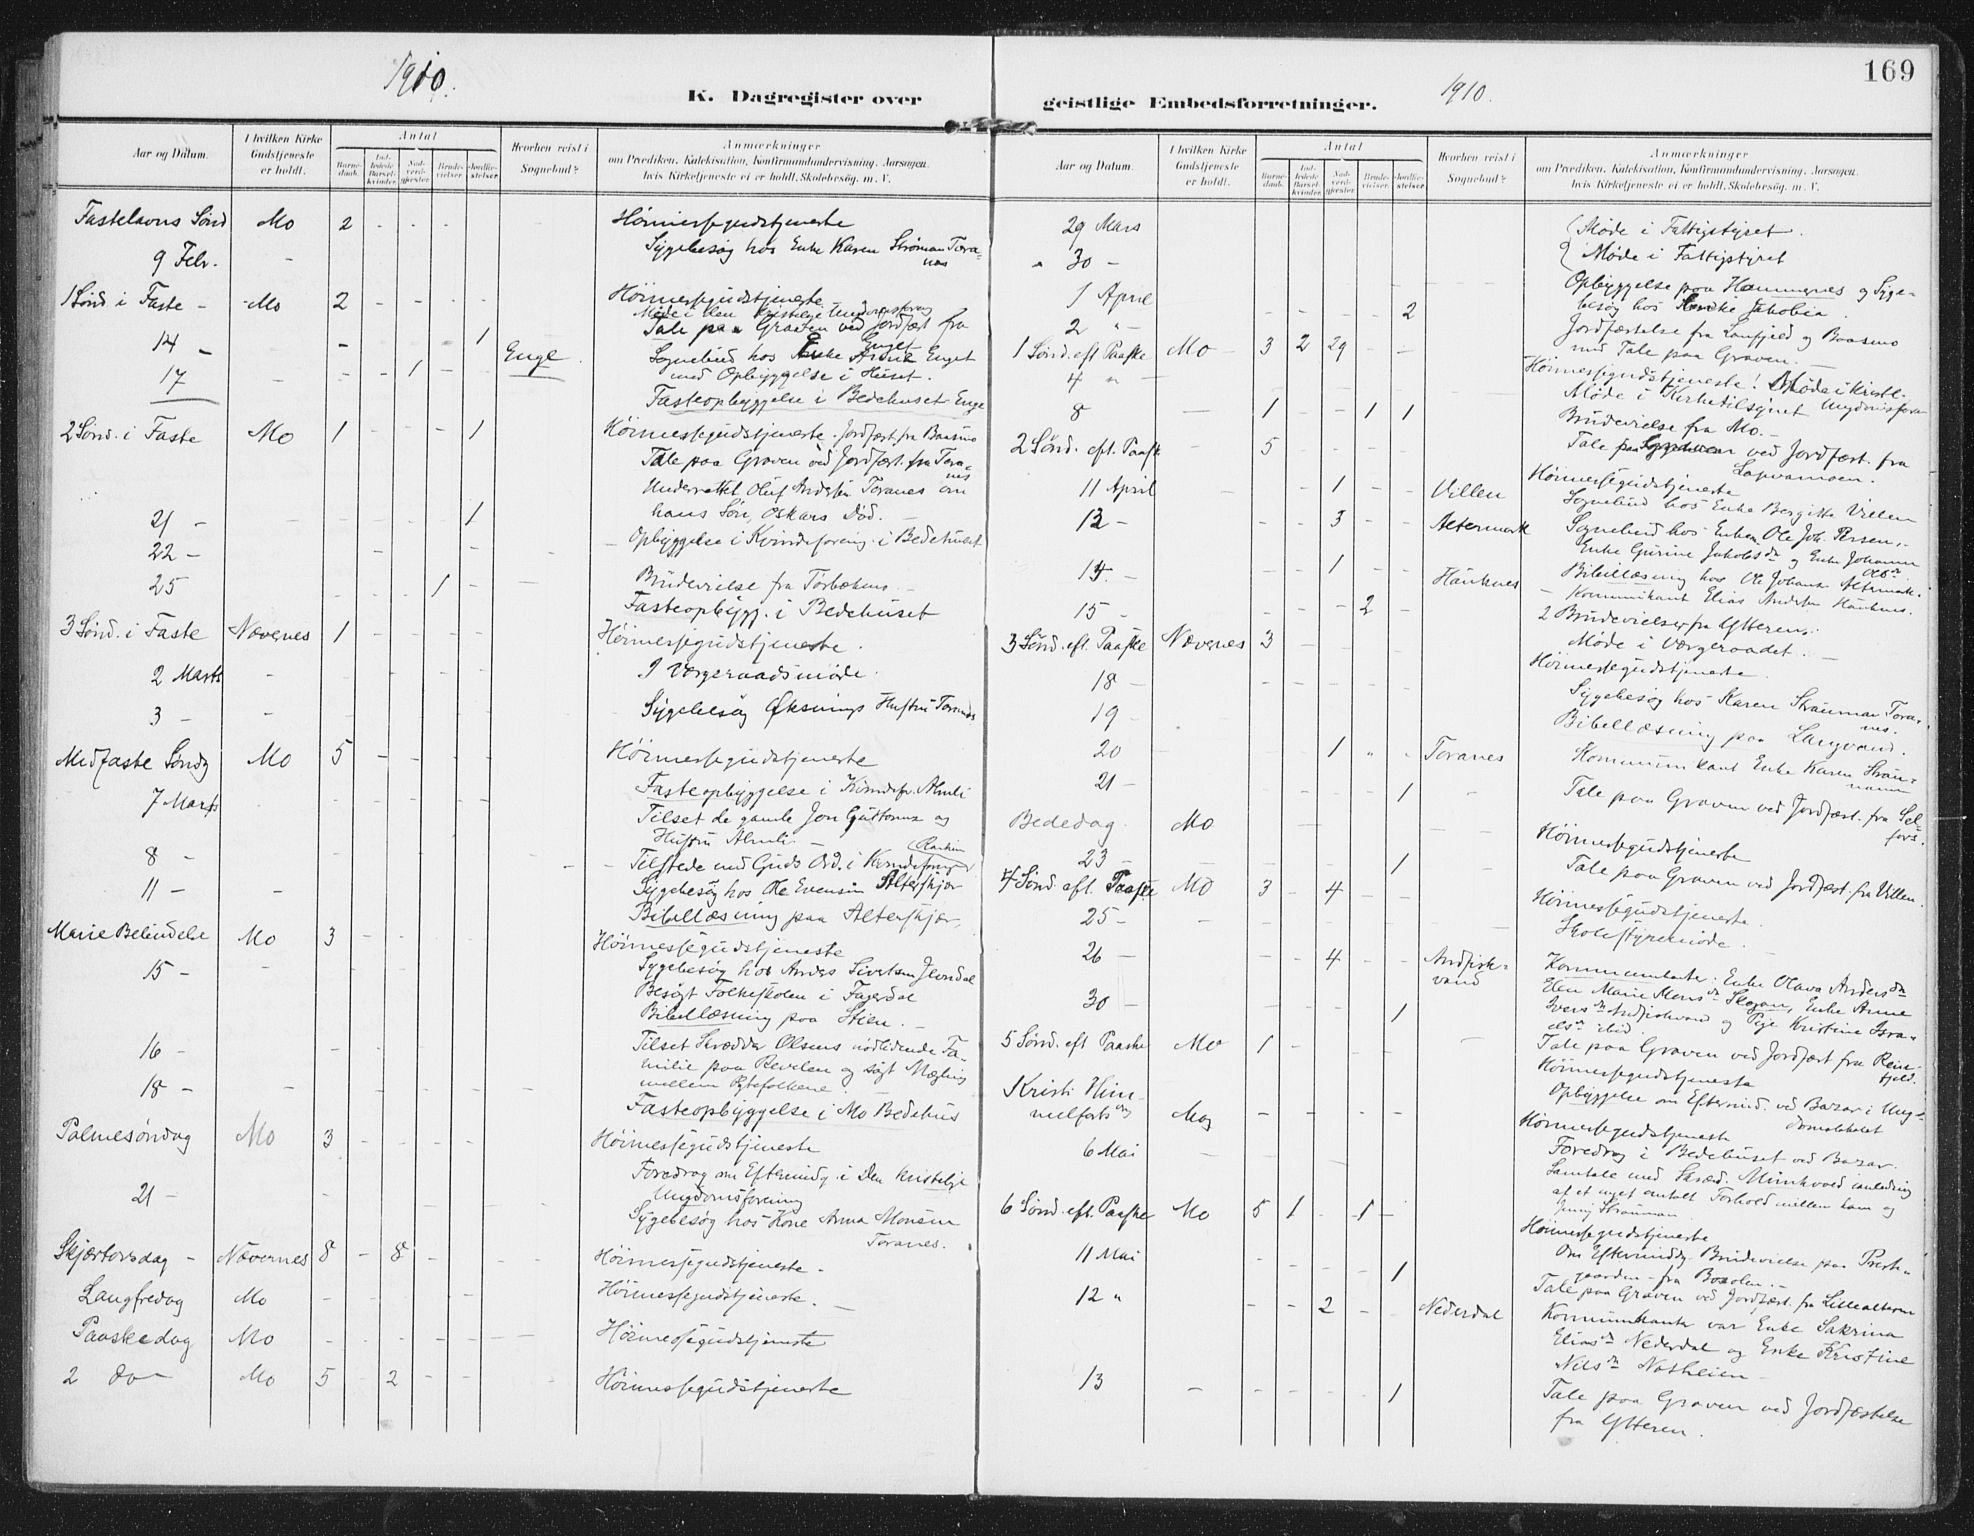 1910.
K. Dagregister over
Aar og Datum.
I hvilken Kirke Gudstjeneste er holdt.
Antal
Barne-daab.
Ind-ledede Barsel-kvinder.
Nad-verd-gjester
Brude-vielser
Jordfæ-stelser
Hvorhen reist i Sognebud?
Anmærkninger
om Prædiken, Katekisation, Konfirmandundervisning, Aarsagen,
hvis Kirketjeneste ei er holdt, Skolebesøg, m. V.
Fastelavns Sønd Mo 2 Høimessegudstjeneste
9 Febr. Sygebesøg hos Enke Karen Strøman Tora-
nes
1 Sønd. i Faste - Mo 2 Høimessegudstjeneste
Møde i den kristelige Ungdomsforening
14 - 1 Tale paa Graven ved Jordfæst fra
Enget
17 1 Enge Sognebud hos Enke Enget
med Opbyggelse i Huset.
Fasteopbyggelse i Bedehuset Enge
2 Sønd. i Faste Mo 1 1 Høimessegudstjeneste. Jordfæst. fra Baasmo
Tale paa Graven ved Jordfæst. fra Tora-
nes
Underrettet Oluf Andersen Toranes om
21 - 1 hans Søn, Oskars Død.
22 - Opbyggelse i Kvindeforening i Bedehuset
25 1 Brudevielse fra
Fasteopbygg. i Bedehuset
3 Sønd. i Faste Nævernes 1 Høimessegudstjeneste.
2 Marts I Værgeraadsmøde.
3 - Sygebesøg Hustru Toranes
Midfaste Søndg Mo 5 Høimessegudstjeneste
7 Marts Fasteopbyggelse i Kvindefor. Almli
Tilset de gamle Jon Guttorms og
Hustru Almli. -
8 - Tilstede med Guds Ord i Kvindeforening
11 - Sygebesøg hos Ole Evensen Alterskjær
Bibellæsning paa Alterskjær.
Marie Bebudelse Mo 3 Høimessegudstjeneste
15 - Sygebesøg hos Anders Sivertsen
Besøgt Folkeskolen i Fagerdal
Bibellæsning paa Stien.
16 - Tilset Skrædder Olsens nødlidende Fa-
milie paa Revelen og søgt Mægling
18 - mellem Ægtefolkene.
Fasteopbyggelse i Mo Bedehus
Palmesøndag Mo 3 Høimessegudstjeneste
Foredrag om Eftermiddg i Den kristelige
Ungdomsforening
21 - Sygebesøg hos Kone Anna Monsen
Toranes.
Skjærtorsdag - Nævernes 8 - 8 Høimessegudstjeneste.
Langfredag Mo Høimessegudstjeneste.
Paaskedag Mo Høimessegudstjeneste
2 do - Mo 5 2 Høimessegudstjeneste
169
geistlige Embedsforretninger.
1910.
Aar og Datum.
I hvilken Kirke Gudstjeneste er holdt.
Antal
Barne-daab.
Ind-ledede Barsel-kvinder.
Nad-verd-gjester
Brude-vielser
Jordfæ-stelser
Hvorhen reist i Sognebud?
Anmærkninger
om Prædiken, Katekisation, Konfirmandundervisning, Aarsagen,
hvis Kirketjeneste ei er holdt, Skolebesøg, m. V.
29 Mars Møde i Fattigstyret.
30 - Møde i Fattigstyret
1 April Opbyggelse paa Hammernes og Syge-
besøg hos Jakobia.
2 " 2 Jordfæstelse fra Lanfjeld og Baasmo
med Tale paa Graven.
1 Sønd. eft. Paaske Mo 3 2 29 Høimessegudstjeneste! Møde i kristl.
4 " Møde i Kirketilsynet Ungdomsforen
8 1 1 1 Brudevielse fra Mo.
Tale paa Graven ved Jordfæst. fra
2 Sønd. eft. Paaske 5 Høimessegudstjeneste
11 April 1 Villen Sognebud hos Enke Bergitte Villen
13 - 3 Altermark Sognebud hos Enkem. Ole Joh. Persen,
Enke Gurine Jakobsdn og Enke Johanna
Olsdn
14 - 1 Hauknes Bibellæsning hos Ole Johans. Altermark.
Kommunikant Elias Andersen Hauknes.
15 - 2 2 Brudevielser fra Ytteren.
Møde i Værgeraadet.
3 Sønd. eft. Paaske Nævernes 3 Høimessegudstjeneste.
18 - Sygebesøg hos Karen Strøman Tora-
nes.
19 - Bibellæsning paa Langvand.
20 1 Toranes Kommunikant Enke Karen Strøm-
21 - 1 Tale paa Graven ved Jordfæst. fra Sel-
fors.
Bededag Mo Høimessegudstjeneste
23 - 1 Tale paa Graven ved Jordfæst. fra Villen.
4 Sønd. eft. Paaske Mo 3 - 4 Høimessegudstjeneste.
25 - Skolestyremøde.
26 - 4 Andfisk-
vand Kommunikanter: Enke Olava Andersdn
Elen Marie Monsdn Skogan, Enke Anne
Iversdn Andfiskvand og Pige Kristine Isra-
elsdn ibid.
30 - 1 Tale paa Graven ved Jordfæst fra Rein-
fjeld.
5 Sønd. eft Paaske Mo 1 Høimessegudstjeneste
Opbyggelse om Eftermid. ved Bazar i Ung-
domslokalet
Kristi Him-
melfartsdg Mo Høimessegudstjeneste
Foredrag i Bedehuset ved Bazar.
6 Mai Samtale med Skræd. Munkvold anledning
af et uget antalt Forhold mellem ham og
6 Sønd. eft. Paaske Mo 5 1 1 Høimessegudstjeneste
Om Eftermiddg Brudevielse paa Prest-
gaarden fra
11 Mai 1 Tale paa Graven ved Jordfæst. fra Lillealteren
12 " 2 Nederdal Kommunikanter var Enke Sakrina
Eliasdn Nederdal og Enke Kristine
Nilsdn
13 1 Tale paa Graven ved Jordfæstelse
fra Ytteren.